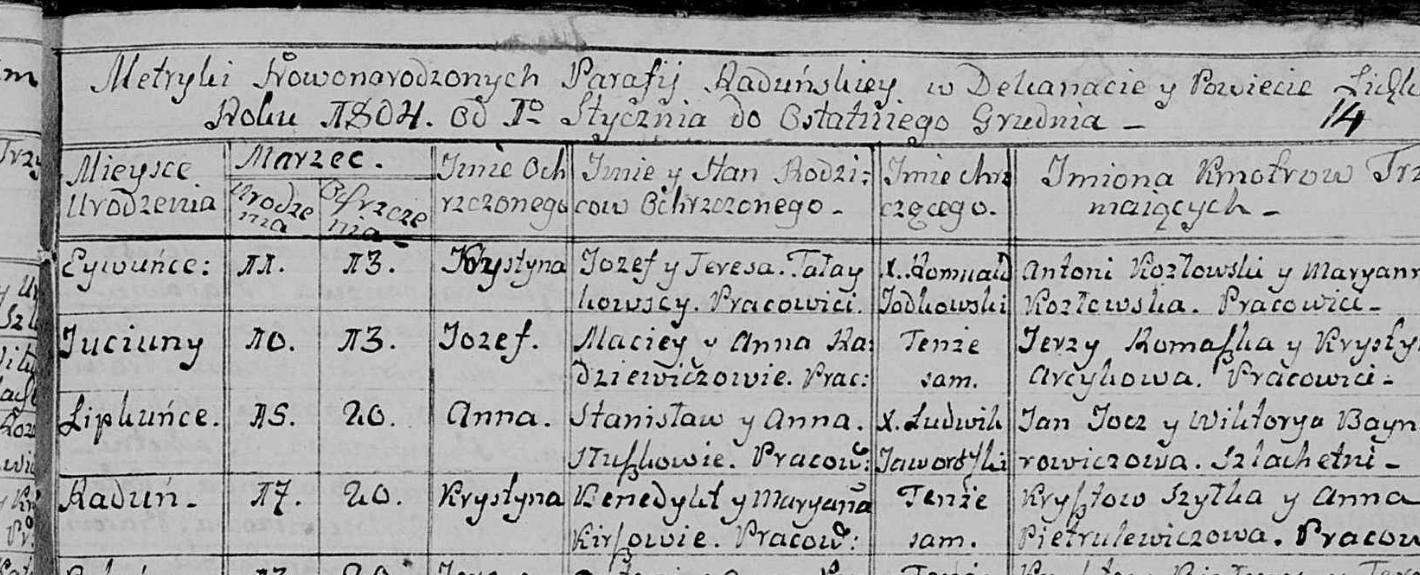 Metryki Nowonarodzonych Parafij Raduńskiey w Dekanacie y Powiecie
Roku 1804. od 1º Stycznia do Ostatniego Grudnia - 14
Mieysce Urodzenia
Marzec.
Urodzenia
Ochrzczenia
Imie Och
rzczonego
Imie y Stan Rodzi:
cow Ochrzczonego.
Imie chrz
czącego.
Imiona Kmotrow Trz
maiących -
Eywuńce: 11. 13. Krystyna Jozef y Teresa. Tałay X. Romuald Antoni Kozłowski y Maryann
kowscy. Pracowici. Jodkowski Kozłowska. Pracowici -
Juciuny 10. 13. Jozef. Maciey y Anna Ra: Tenże Jerzy Romaszka y Krysty
dziewiczowie. Prac: sam. Arcykowa. Pracowici -
Lipkuńce. 15. 20. Anna. Stanisław y Anna. X. Ludwik Jan Jocz y Wiktorya Bayn
Pracow: Jaworski rowiczowa. Szlachetni -
Raduń. 17. 20. Krystyna Benedykt y Maryana Tenże Krysztow Szytka y Anna
Pracow: sam. Pietrulewiczowa. Pracow